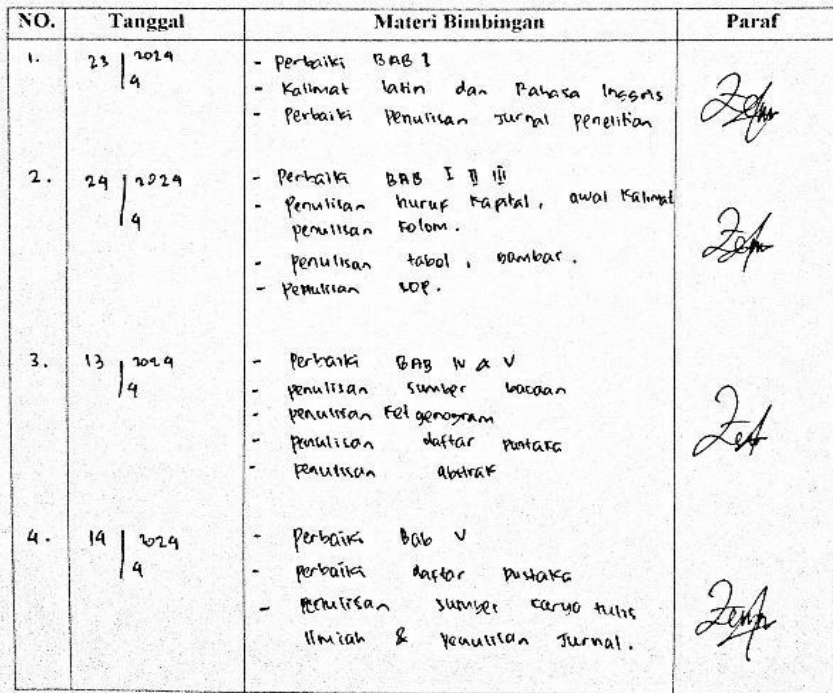 NO. Tanggal Materi Bimbingan Paraf
1. 23 | 2024 - Perbaiki BAB I
4 - Kalimat latin dan Bahasa Inggris
- Perbaiki Penulisan Jurnal penelitian
2. 24 | 2024 - Perbaiki BAB I II III
4 - Penulisan huruf Kapital, awal Kalimat
penulisan Kolom.
- penulisan tabel, gambar.
- Penulisan SOP.
3. 13 | 2024 - Perbaiki BAB IV & V
4 - penulisan sumber bacaan
- penulisan Ket genogram
- penulisan daftar pustaka
- penulisan abstrak
4. 14 | 2024 - Perbaiki Bab V
4 - perbaiki daftar pustaka
- penulisan sumber karya tulis
Ilmiah & penulisan Jurnal.